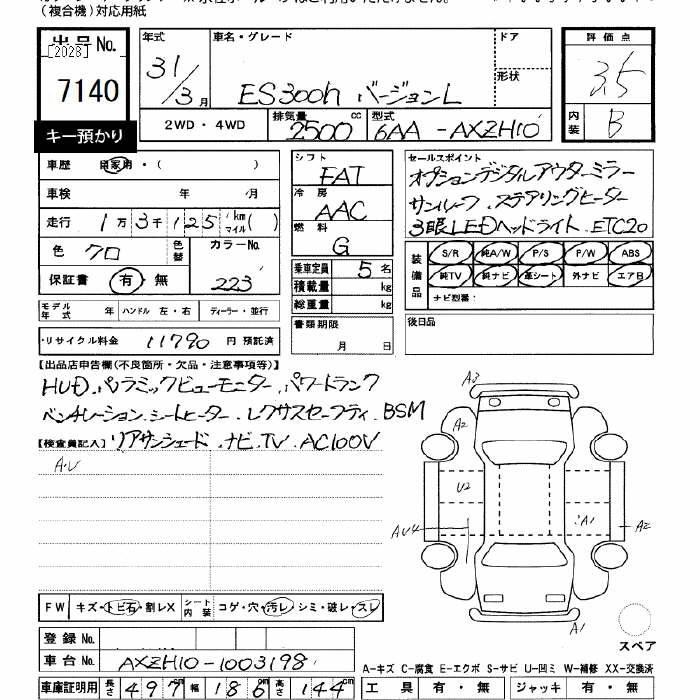 (複合機)対応用紙
出品No.
[2028]
7140
キー預かり
年式
31/3月
車名・グレード
ES300h バージョンL
ドア
形状
評価点
3.5
内装
B
2WD・4WD
排気量
2500cc
型式
6AA-AXZH10
車歴 自家用・( )
車検 年 月
走行 1万3千125 km マイル( )
色 クロ
色替
カラーNo.
223
保証書 有・無
シフト
FAT
冷房
AAC
燃料
G
乗車定員 5名
積載量 kg
総重量 kg
セールスポイント
オプションデジタルアウターミラー
サンルーフ.ステアリングヒーター
3眼LEDヘッドライト.ETC2.0
装備品
S/R 純A/W P/S P/W ABS
純TV 純ナビ 革シート 外ナビ エアB
ナビ型番:
モデル年式 年 ハンドル 左・右 ディーラー・並行
・リサイクル料金 11790円 預託済
書類期限
月 日
後日品
【出品店申告欄(不良箇所・欠品・注意事項等)】
HUD.パノラミックビューモニター.パワートランク
ベンチレーション.シートヒーター.レクサスセーフティ.BSM
リアサンシェード.ナビ.TV.AC100V
【検査員記入】
A.U
A3
A2
U2
AU4
A1
A2
A1
スペア
FW キズ・トビ石・割レX シート内装 コゲ・穴・汚レ・シミ・破レ・スレ
登録No.
車台No. AXZH10-1003198
A-キズ C-腐食 E-エクボ S-サビ U-凹ミ W-補修 XX-交換済
車庫証明用 長さ 497cm 幅 186cm 高さ 144cm
工具 有・無 ジャッキ 有・無